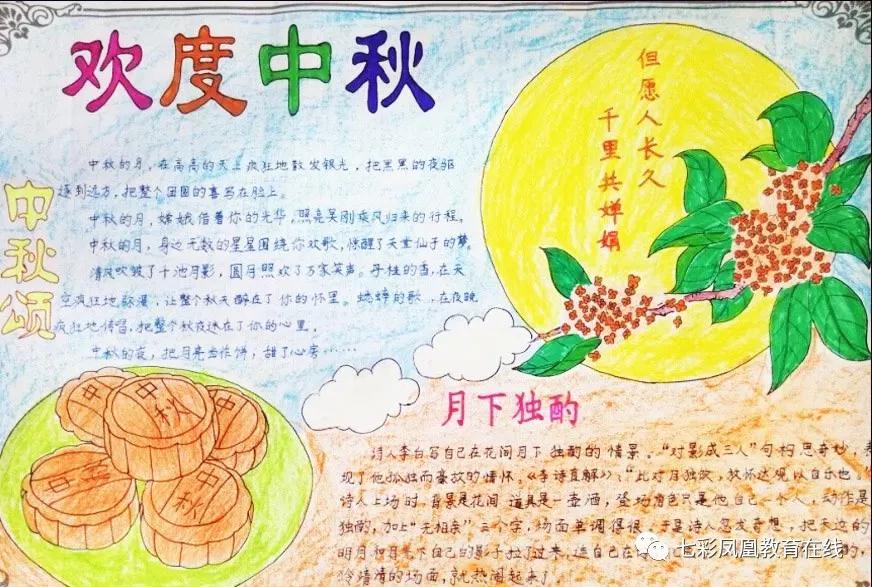 欢度中秋
但愿人长久
千里共婵娟
中秋颂
中秋的月，在高高的天上疯狂地散发银光，把黑黑的夜驱
逐到远方，把整个团圆的喜写在脸上。
中秋的月，嫦娥借着你的光华，照亮吴刚乘风归来的行程。
中秋的月，身边无数的星星围绕你欢歌，惊醒了天堂仙子的梦。
清风吹皱了十池月影，圆月照欢了万家笑声。丹桂的香，在天
空疯狂地弥漫，让整个秋天醉在了你的怀里。蟋蟀的歌，在夜晚
疯狂地传唱，把整个秋夜迷在了你的心里。
中秋的夜，把月亮当作饼，甜了心房……
中秋
中秋
中秋
中秋
中秋
月下独酌
诗人李白写自己在花间月下独酌的情景。“对影成三人”句构思奇妙，表
现了他孤独而豪放的情怀。《李诗直解》：“此对月独饮，放怀达观以自乐也。
诗人上场时，背景是花间，道具是一壶酒，登场角色只是他自己一个人，动作是
独酌，加上“无相亲”三个字，场面单调得很。于是诗人忽发奇想，把天边的
明月和月光下自己的影子拉了过来，连自己在
冷清清的场面，就热闹起来了
七彩凤凰教育在线